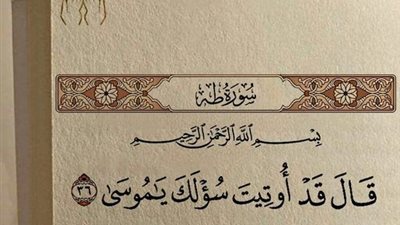 سُورَةُ طه
بِسْمِ اللَّهِ الرَّحْمَٰنِ الرَّحِيمِ
قَالَ قَدْ أُوتِيتَ سُؤْلَكَ يَٰمُوسَىٰ ٣٦